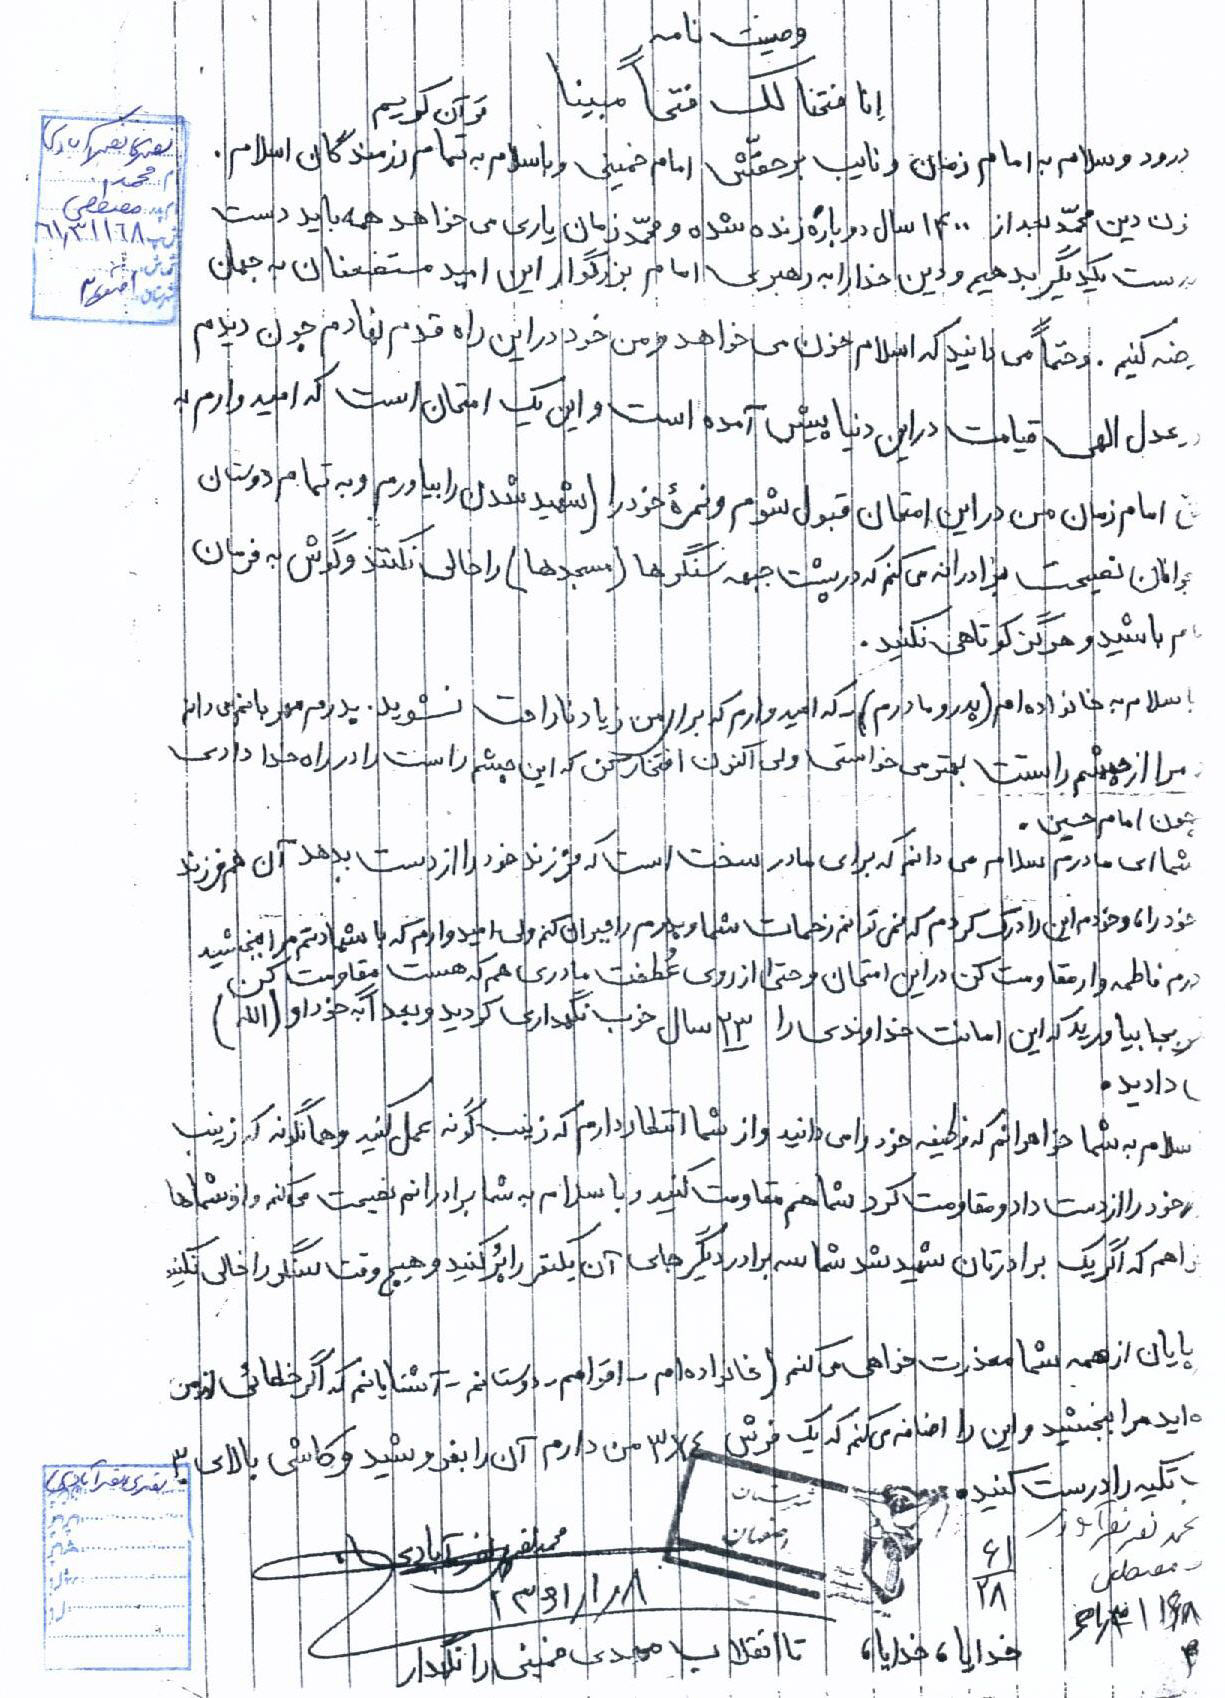 وصیت نامه
انا فتحنا لک فتحاً مبینا قرآن کریم
درود و سلام به امام زمان و نایب بر حقّش امام خمینی و با سلام به تمام رزمندگان اسلام.
دین محمّد بعد از ۱۴۰۰ سال دوباره زنده شده و محمّد زمان یاری می خواهد همه باید دست
یکدیگر بدهیم و دین خدا را به رهبری امام بزرگوار این امید مستضعفان به جهان
کنیم. و حتماً می دانید که اسلام خون می خواهد و من خود در این راه قدم نهادم چون دیدم
عدل الهی قیامت در این دنیا پیش آمده است و این یک امتحان است که امیدوارم به
امام زمان من در این امتحان قبول شوم و نمرهٔ خود را (شهید شدن را بیاورم و به تمام دوستان
نصیحت برادرانه می کنم که در پشت جبهه سنگرها (مسجدها) را خالی نکنند و گوش به فرمان
باشید و هرگز کوتاهی نکنید.
با سلام به خانواده ام (پدر و مادرم) که امیدوارم که برای من زیاد ناراحت نشوید. پدرم مهربانم می دانم
مرا از چشم راست بهتر می خواستی ولی اکنون افتخار کن که این چشم راست را در راه خدا دادی
چون امام حسین.
شما ای مادرم سلام می دانم که برای مادر سخت است که فرزند خود را از دست بدهد آن هم فرزند
خود را، و خودم این را درک کردم که نمی توانم زحمات شما و پدرم را جبران کنم ولی امیدوارم که با شهادتم مرا ببخشید
فاطمه وار مقاومت کن در این امتحان و حتی از روی عُطفت مادری هم که هست مقاومت کن
بجا بیاورید که این امانت خداوندی را ۲۳ سال خوب نگهداری کردید و بعداً به خود او (الله)
دادید.
سلام به شما خواهرانم که وظیفه خود را می دانید و از شما انتظار دارم که زینب گونه عمل کنید و همانگونه که زینب
خود را از دست داد و مقاومت کرد شما هم مقاومت کنید و با سلام به شما برادرانم نصیحت می کنم و از شماها
که اگر یک برادرتان شهید شد شما سه برادر دیگر جای آن یکنفر را پُر کنید و هیچ وقت سنگر را خالی نکنید
پایان از همه شما معذرت خواهی می کنم (خانواده ام - اقوامم - دوستانم - آشنایانم که اگر خطائی از من
اید مرا ببخشید و این را اضافه می کنم که یک فرش ۳×۴ من دارم آن را بفروشید و کاشی بالای
تکیه را درست کنید.
محمد نصری نصرآبادی
۱۳۶۱/۱/۸
خدایا، خدایا، تا انقلاب مهدی خمینی را نگهدار
نصری نصرآبادی
محمد
مصطفی
۶۱/۳۱۱۶۸
نصری نصرآبادی
۶۱
۲۸
مصطفی